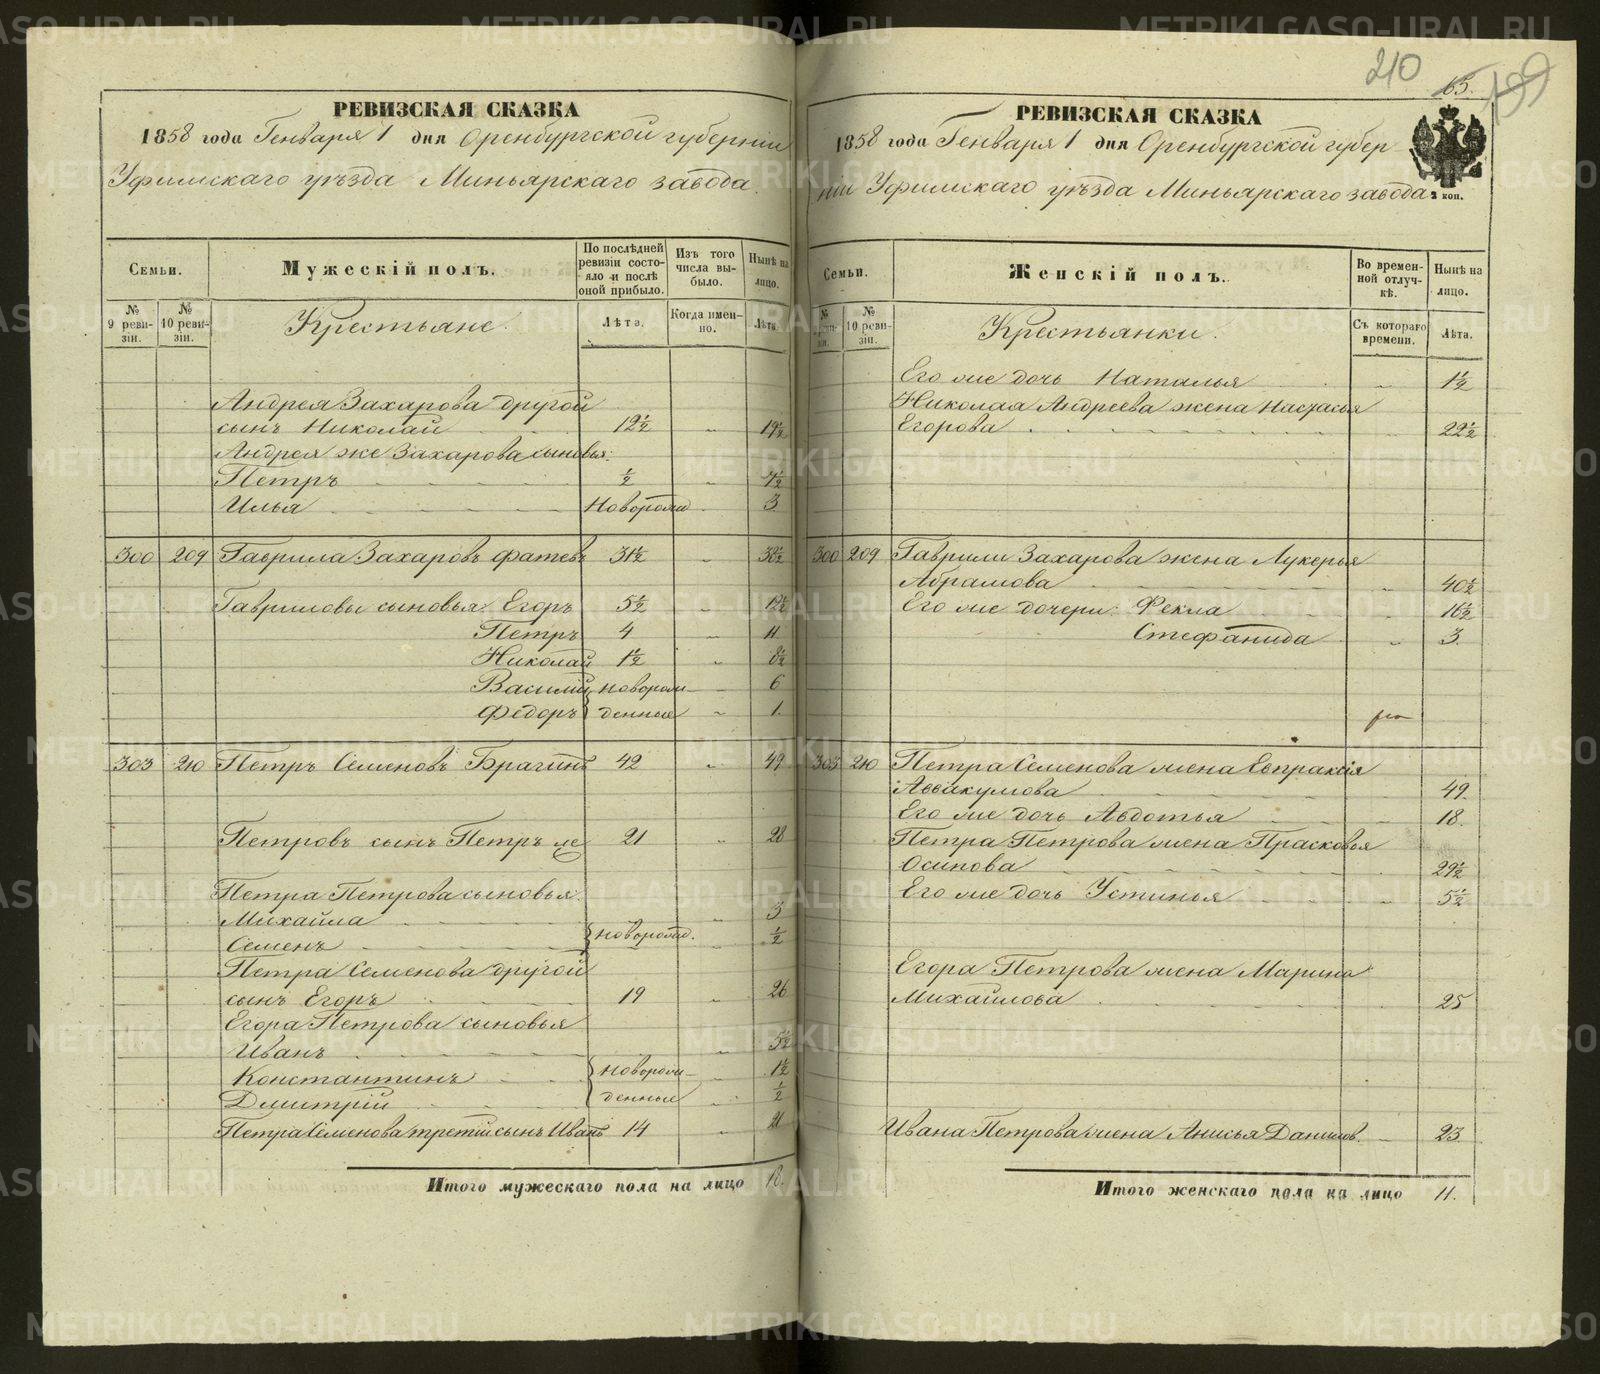 210
65.
199
РЕВИЗСКАЯ СКАЗКА
1858 года Генваря 1 дня Оренбургской губернии
Уфимскаго уѣзда Миньярскаго завода.
Семьи.
Мужескій полъ.
По послѣдней ревизіи состояло и послѣ оной прибыло.
Изъ того числа выбыло.
Нынѣ на лицо.
№ 9 ревизіи.
№ 10 ревизіи.
Крестьяне.
Лѣта.
Когда именно.
Лѣта.
Андрея Захарова другой
сынъ Николай 12½ „ 19½
Андрея же Захарова сыновья:
Петръ ½ „ 7½
Илья новорожд 3
300 209 Гаврила Захаровъ Фатевъ 31½ „ 38½
Гавриловы сыновья Егоръ 5½ „ 12½
Петръ 4 „ 11
Николай 1½ „ 8½
Василій новорож- 6
Федоръ денные „ 1.
303 210 Петръ Семеновъ Брагинъ 42 „ 49
Петровъ сынъ Петръ же 21 „ 28
Петра Петрова сыновья:
Михайла „ 3
Семенъ новорожд. ½
Петра Семенова другой
сынъ Егоръ 19 „ 26
Егора Петрова сыновья
Иванъ „ 5½
Константинъ новорож- 1½
Дмитрій денные „ ½
Петра Семенова третій сынъ Иванъ 14 „ 21
Итого мужескаго пола на лицо 18.
РЕВИЗСКАЯ СКАЗКА
1858 года Генваря 1 дня Оренбургской губер
ніи Уфимскаго уѣзда Миньярскаго завода
2 коп.
Семьи.
Женскій полъ.
Во временной отлучкѣ.
Нынѣ на лицо.
№ 10 ревизіи.
Крестьянки.
Съ котораго времени.
Лѣта.
Его же дочь Наталья „ 1½
Николая Андреева жена Настасья
Егорова „ 22½
300 209 Гаврилы Захарова жена Лукерья
Абрамова „ 40½
Его же дочери: Фекла „ 16½
Стефанида „ 3.
303 210 Петра Семенова жена Евпраксія
Аввакумова 49.
Его же дочь Авдотья „ 18.
Петра Петрова жена Прасковья
Осипова 29½
Его же дочь Устинья „ 5½
Егора Петрова жена Марина
Михайлова „ 25
Ивана Петрова жена Анисья Данилов. „ 23
Итого женскаго пола на лицо 11.
METRIKI.GASO-URAL.RU